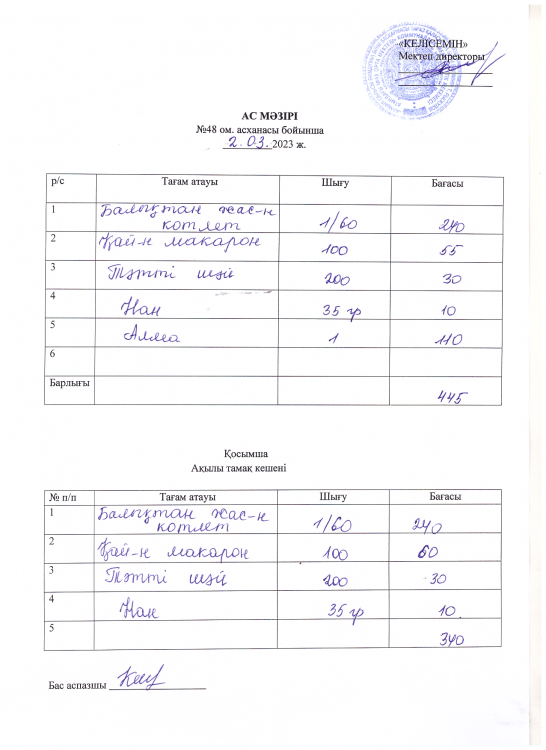 «КЕЛІСЕМІН»
Мектеп директоры
АС МӘЗІРІ
№48 ом. асханасы бойынша
2.03.2023 ж.
р/с Тағам атауы Шығу Бағасы
1 Балықтан жас-н котлет 1/60 240
2 Қай-н макарон 100 55
3 Тәтті шәй 200 30
4 Нан 35 гр 10
5 Алма 1 110
6
Барлығы 445
Қосымша
Ақылы тамақ кешені
№ п/п Тағам атауы Шығу Бағасы
1 Балықтан жас-н котлет 1/60 240
2 Қай-н макарон 100 60
3 Тәтті шәй 200 30
4 Нан 35 гр 10
5 340
Бас аспазшы